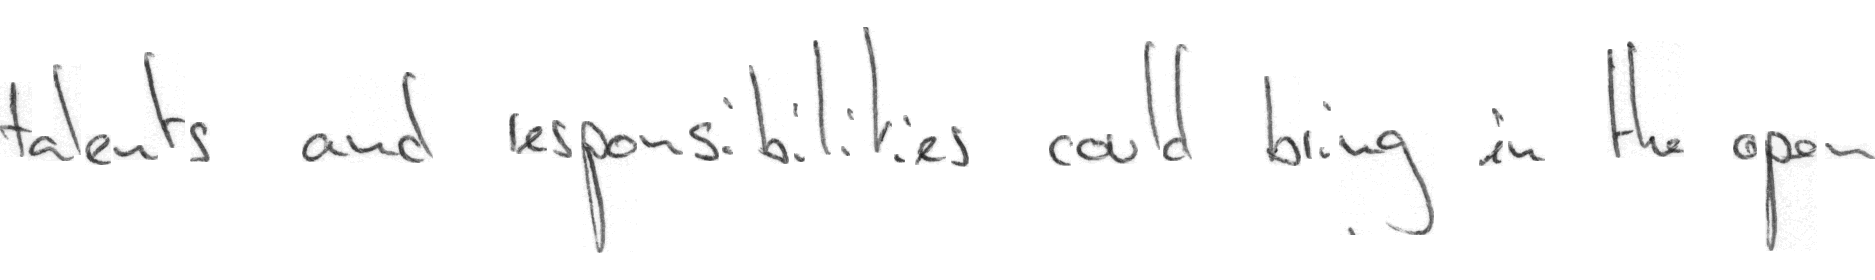 talents and responsibilities could bring in the open